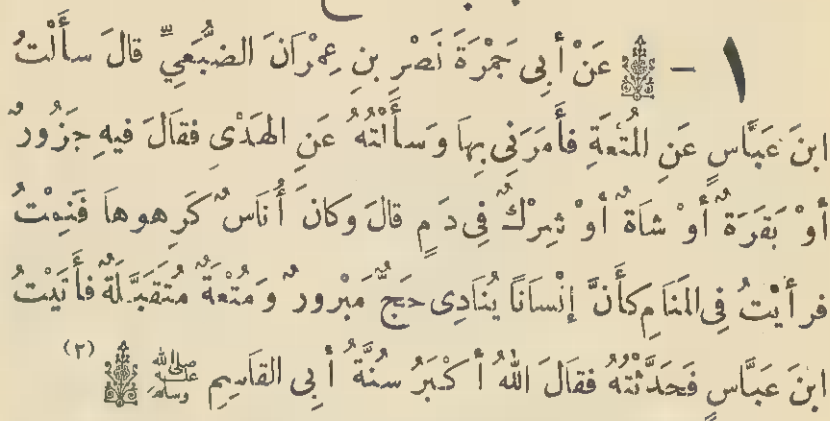 ١ - عَنْ أَبِى جَمْرَةَ نَصْرِ بنِ عِمْرَانَ الضُّبَعِيِّ قالَ سأَلْتُ
ابنَ عَبَّاسٍ عَنِ المُتْعَةِ فأَمَرَنِى بِهَا وَسأَلْتُهُ عَنِ الهَدْىِ فقَالَ فيهِ جَزُورٌ
أوْ بَقَرَةٌ أوْ شاةٌ أوْ شِركٌ فِى دَمٍ قالَ وكانَ أُناسٌ كَرِهوهاَ فَنِمْتُ
فرأَيْتُ فِى المَنَامِ كأَنَّ إنْسَانًا يُنَادِى حَجٌّ مَبْرورٌ وَمُتْعَةٌ مُتَقَبَّلَةٌ فأَتَيْتُ
ابنَ عَبَّاسٍ فَحَدَّثْتُهُ فقالَ اللهُ أَكْبَرُ سُنَّةُ أبِى القَاسِمِ صلى الله عليه وسلم (٢)